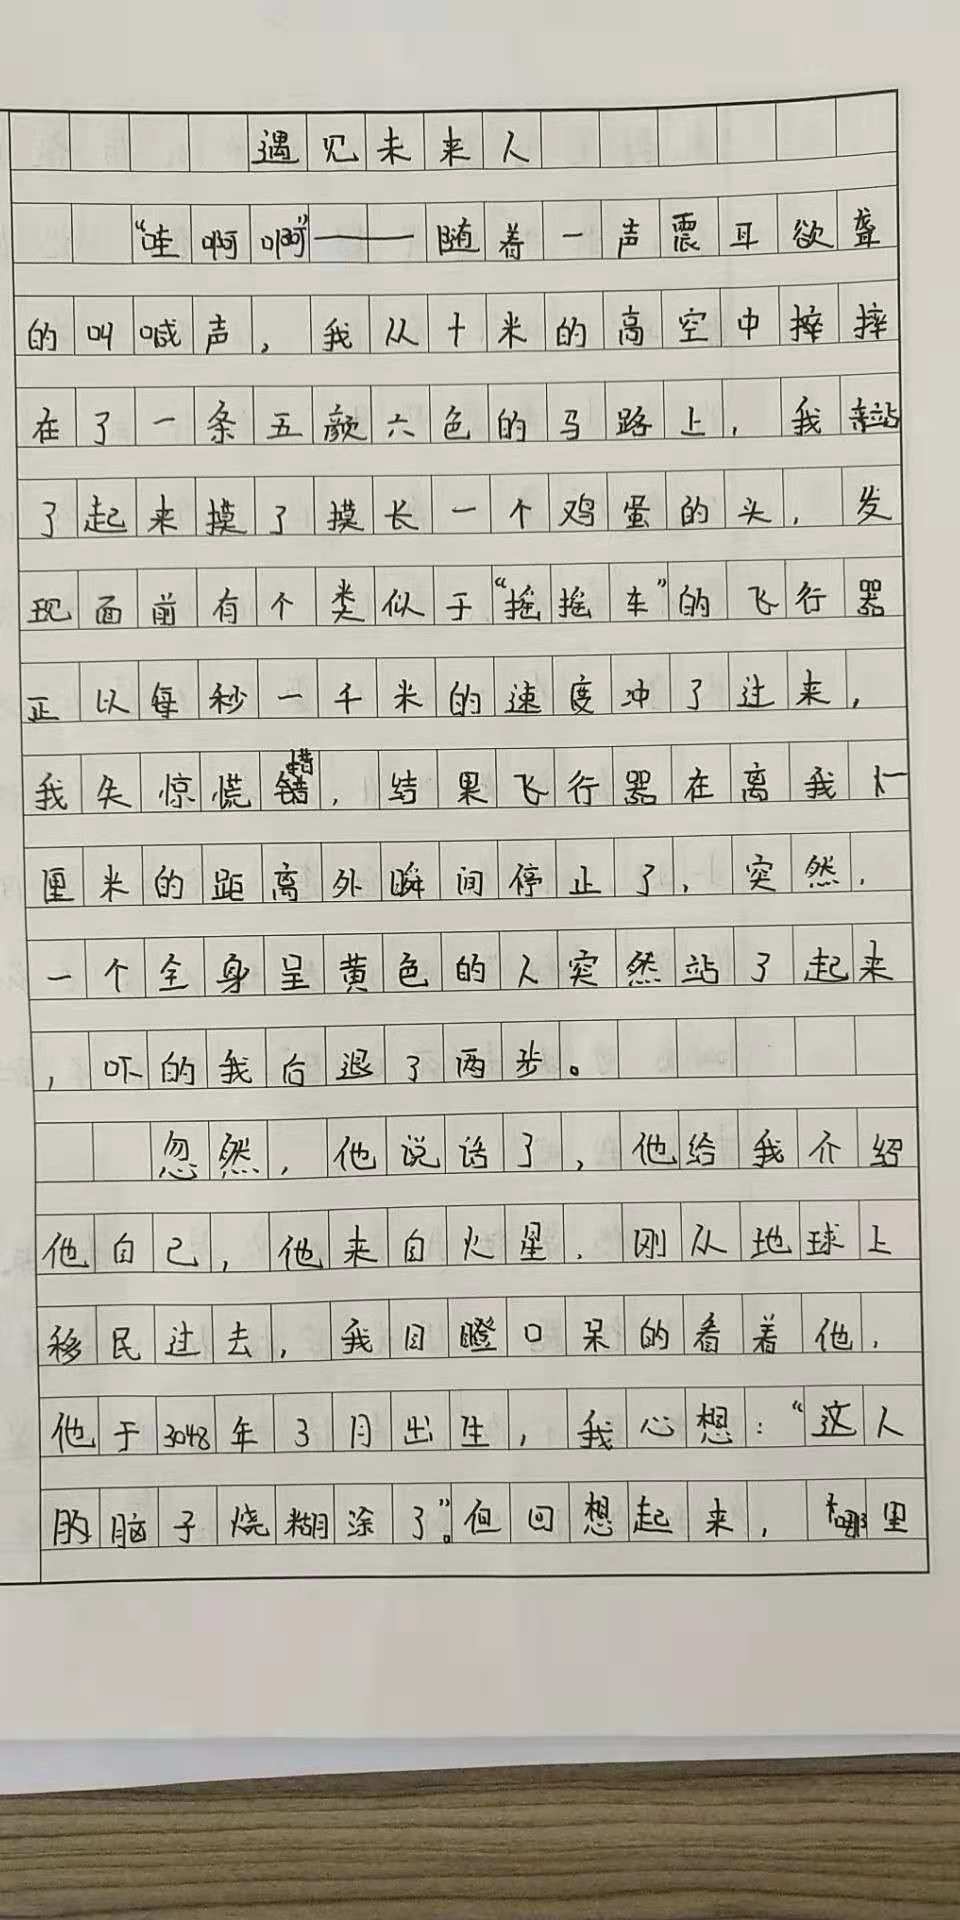 遇见未来人
“哇啊啊”——随着一声震耳欲聋
的叫喊声，我从十米的高空中摔摔
在了一条五颜六色的马路上，我站
了起来摸了摸长一个鸡蛋的头，发
现面前有个类似于“摇摇车”的飞行器
正以每秒一千米的速度冲了过来，
我失惊慌错措，结果飞行器在离我一
厘米的距离外瞬间停止了，突然，
一个全身呈黄色的人突然站了起来
，吓的我后退了两步。
忽然，他说话了，他给我介绍
他自己，他来自火星，刚从地球上
移民过去，我目瞪口呆的看着他，
他于3048年3月出生，我心想：“这人
的脑子烧糊涂了”。但回想起来，哪里